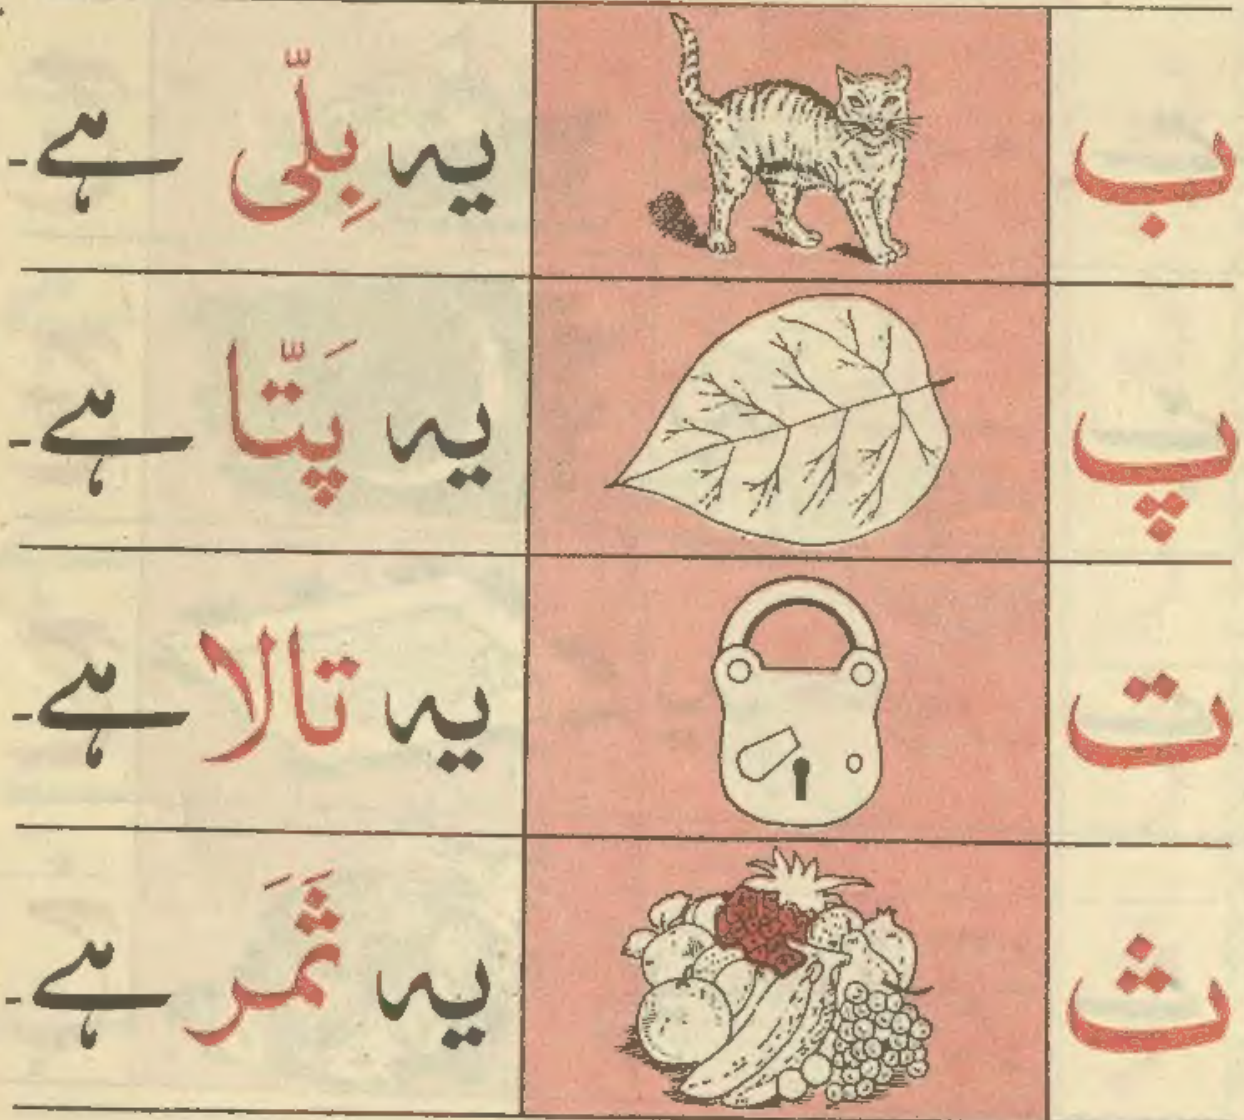 ب یہ بِلّی ہے۔
پ یہ پَتّا ہے۔
ت یہ تالا ہے۔
ث یہ ثَمَر ہے۔